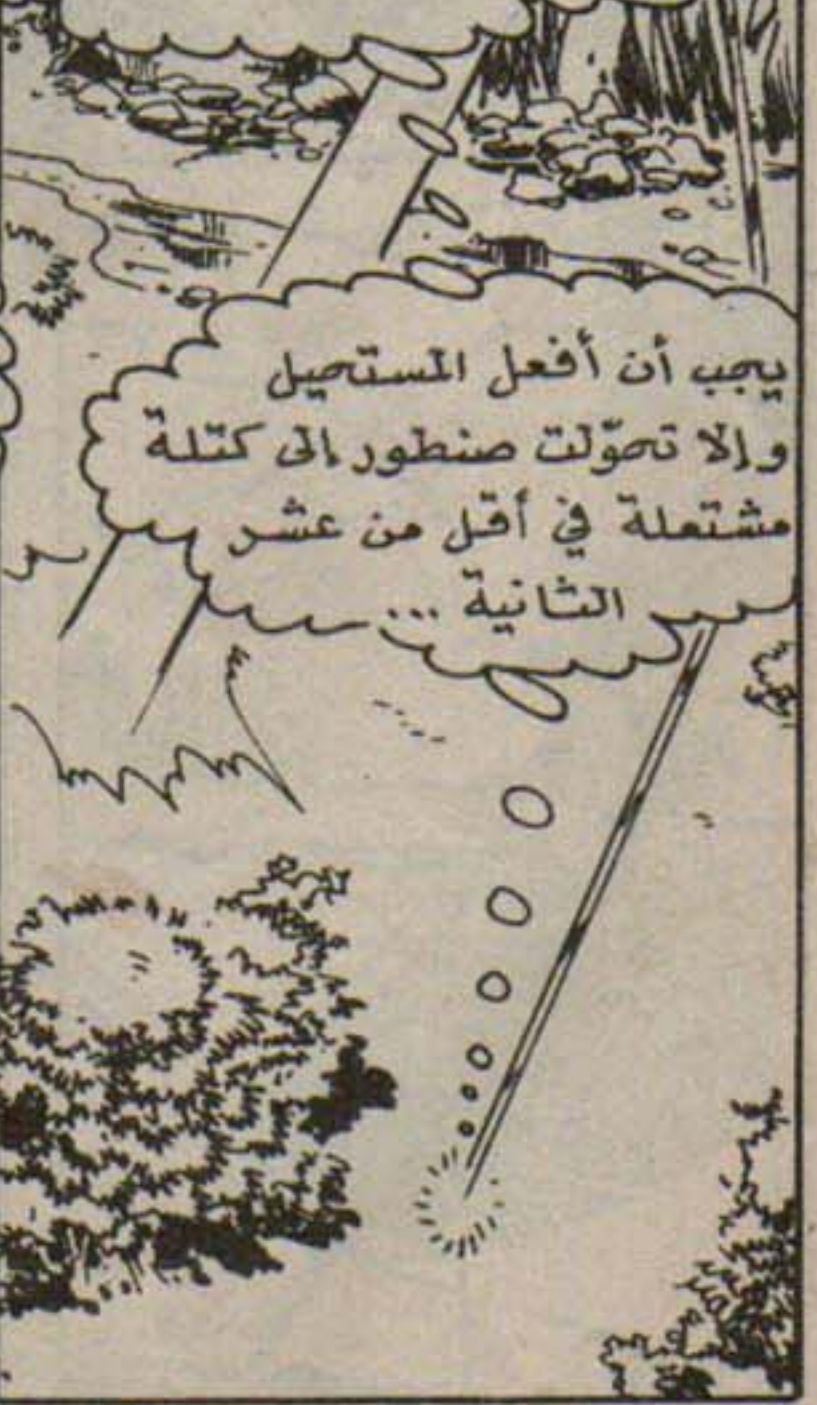 يجب أن أفعل المستحيل
وإلا تحوّلت صنطور إلى كتلة
مشتعلة في أقل من عشر
الثانية ...